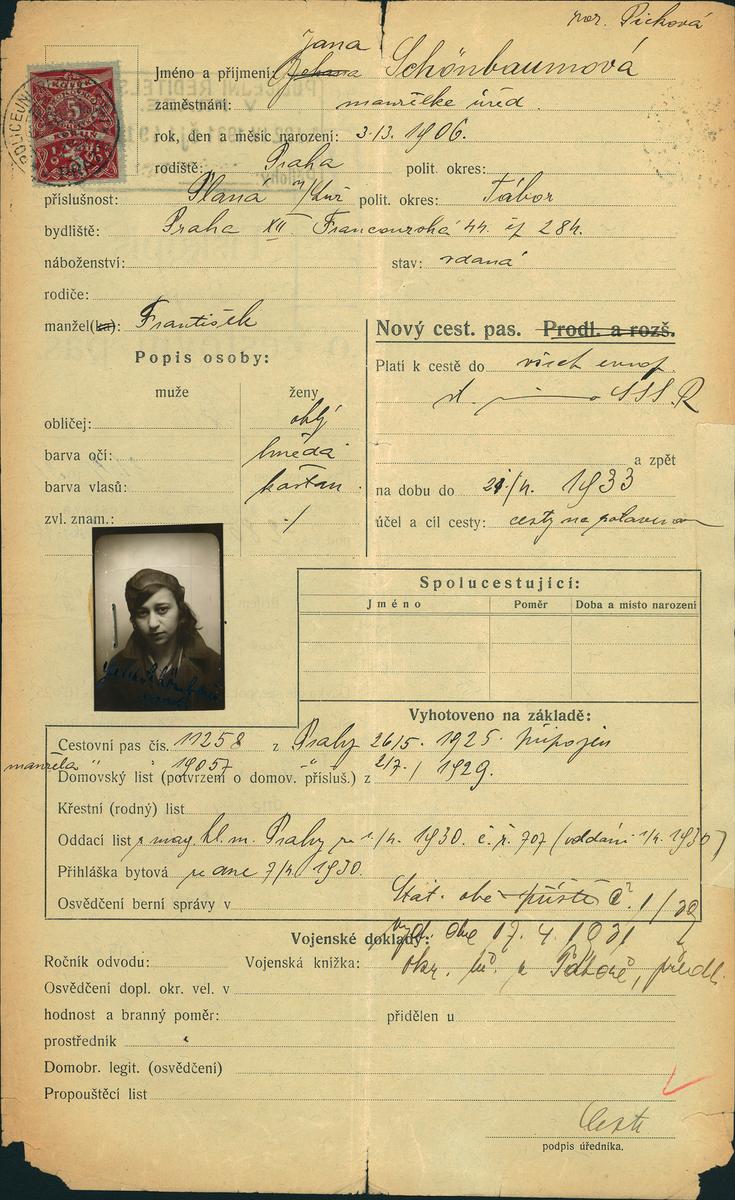 nar. Picková
Jana
Jméno a příjmení: Johana Schönbaumová
zaměstnání: manželka úřed.
rok, den a měsíc narození: 3.13. 1906.
rodiště: Praha polit. okres:
příslušnost: Planá n/Luž polit. okres: Tábor
bydliště: Praha XII Francouzská 44. čp 284.
náboženství: stav: vdaná
rodiče:
manžel(ka): František
Nový cest. pas. Prodl. a rozš.
Popis osoby:
Platí k cestě do všech evrop.
st. SSSR
muže ženy
obličej: oblý
barva očí: hnědá
a zpět
barva vlasů: kaštan.
na dobu do /4. 1933
zvl. znam.: ./.
účel a cíl cesty: cesty na
Spolucestující:
Jméno Poměr Doba a místo narození
Vyhotoveno na základě:
Cestovní pas čís. 11258 z Prahy 26/5. 1925. připojen
manžela " 19057 "
Domovský list (potvrzení o domov. přísluš.) z 2/7. 1929.
Křestní (rodný) list
Oddací list z mag. hl. m. Prahy ze 1/4. 1930. č. ř. 707 (oddáni 1/4. 1930)
Přihláška bytová ze dne 7/4 1930.
Osvědčení berní správy v
Stát. obč. č. 1/30
vyd. dne 17. 4. 1931
Vojenské doklady:
okr. úř. v Táboře, předl.
Ročník odvodu: Vojenská knížka:
Osvědčení dopl. okr. vel. v
hodnost a branný poměr: přidělen u
prostředník
Domobr. legit. (osvědčení)
Propouštěcí list
podpis úředníka.